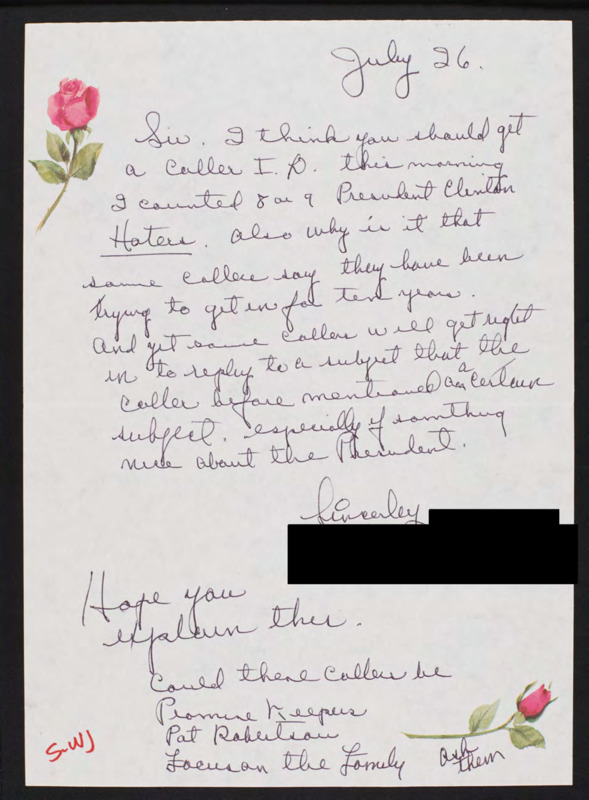 July 26.
Sir. I think you should get
a caller I.D. this morning
I counted 8 or 9 President Clinton
Haters. also why is it that
some callers say they have been
trying to get in for ten years.
and yet some callers will get right
in to reply to a subject that the
caller before mentioned a certain
subject. especially if somthing
nice about the President.
Sincerley
Hope you
explain this.
Could these callers be
Promise Keepers
Pat Robertson
Focus on the Family ask
them
S-WJ